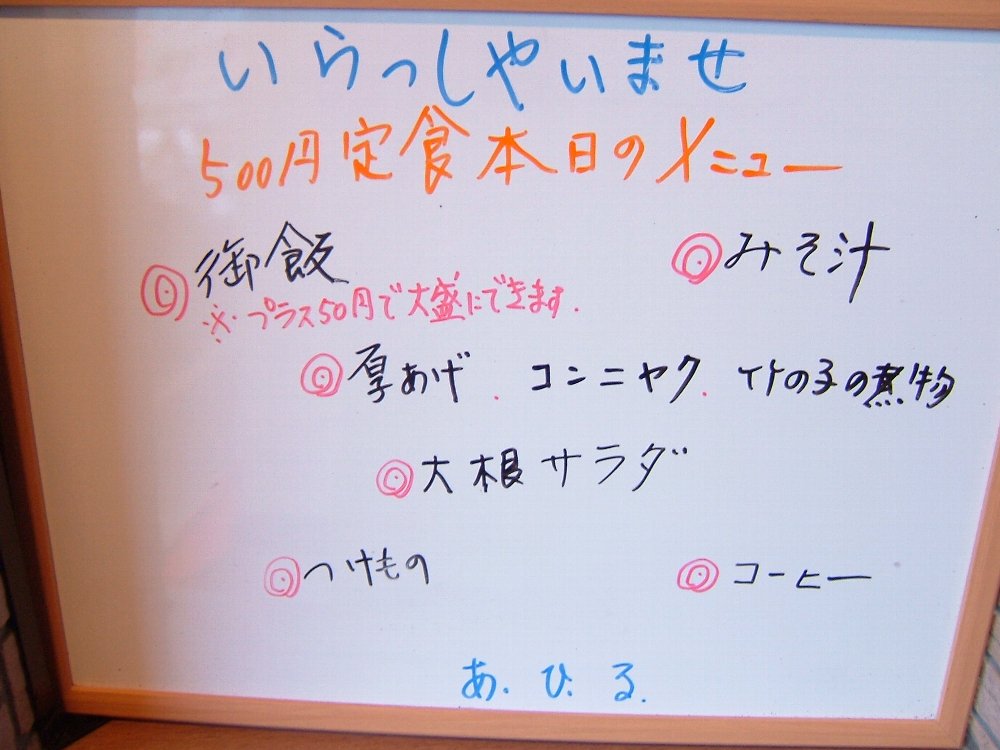 いらっしゃいませ
500円定食本日のメニュー
◎御飯 ◎みそ汁
※プラス50円で大盛にできます.
◎厚あげ.コンニャク.竹の子の煮物
◎大根サラダ
◎つけもの ◎コーヒー
あ.ひ.る.